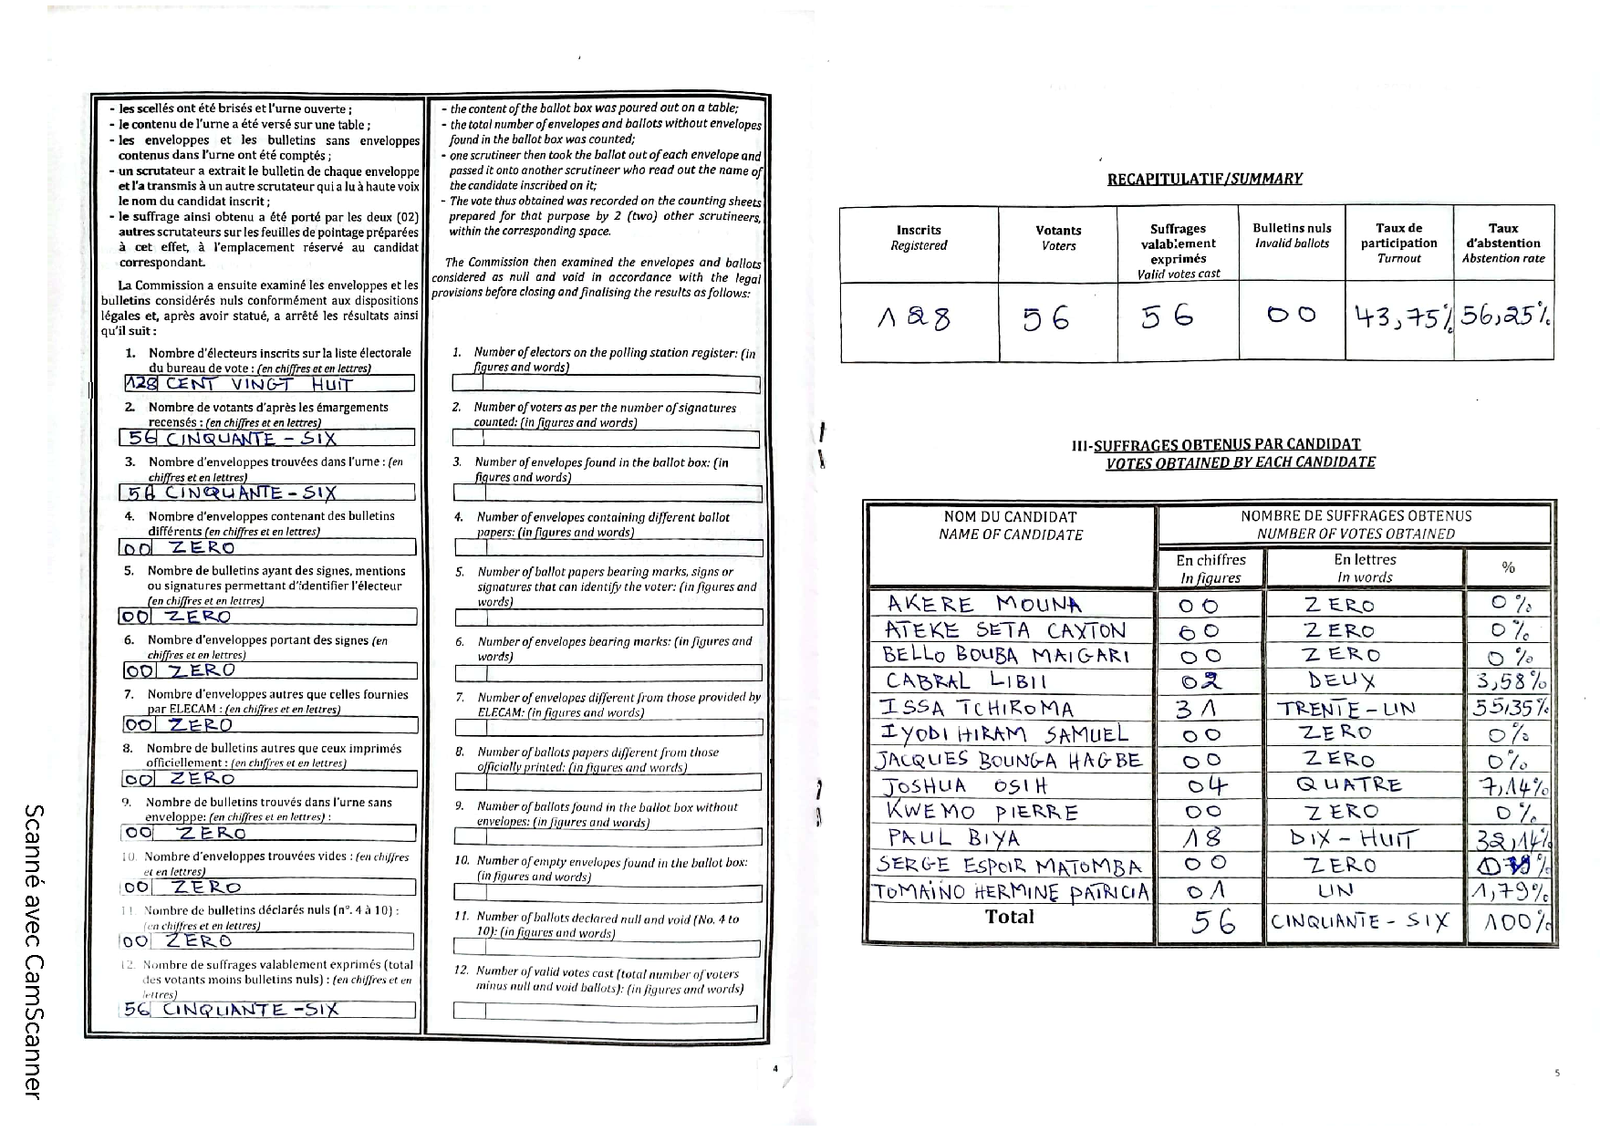 - les scellés ont été brisés et l'urne ouverte ;
- le contenu de l'urne a été versé sur une table ;
- les enveloppes et les bulletins sans enveloppes
contenus dans l'urne ont été comptés ;
- un scrutateur a extrait le bulletin de chaque enveloppe
et l'a transmis à un autre scrutateur qui a lu à haute voix
le nom du candidat inscrit ;
- le suffrage ainsi obtenu a été porté par les deux (02)
autres scrutateurs sur les feuilles de pointage préparées
à cet effet, à l'emplacement réservé au candidat
correspondant.
La Commission a ensuite examiné les enveloppes et les
bulletins considérés nuls conformément aux dispositions
légales et, après avoir statué, a arrêté les résultats ainsi
qu'il suit :
1. Nombre d'électeurs inscrits sur la liste électorale
du bureau de vote : (en chiffres et en lettres)
128 CENT VINGT HUIT
2. Nombre de votants d'après les émargements
recensés : (en chiffres et en lettres)
56 CINQUANTE - SIX
3. Nombre d'enveloppes trouvées dans l'urne : (en
chiffres et en lettres)
56 CINQUANTE - SIX
4. Nombre d'enveloppes contenant des bulletins
différents (en chiffres et en lettres)
00 ZERO
5. Nombre de bulletins ayant des signes, mentions
ou signatures permettant d'identifier l'électeur
(en chiffres et en lettres)
00 ZERO
6. Nombre d'enveloppes portant des signes (en
chiffres et en lettres)
00 ZERO
7. Nombre d'enveloppes autres que celles fournies
par ELECAM : (en chiffres et en lettres)
00 ZERO
8. Nombre de bulletins autres que ceux imprimés
officiellement : (en chiffres et en lettres)
00 ZERO
9. Nombre de bulletins trouvés dans l'urne sans
enveloppe: (en chiffres et en lettres) :
00 ZERO
10. Nombre d'enveloppes trouvées vides : (en chiffres
et en lettres)
00 ZERO
11. Nombre de bulletins déclarés nuls (n°. 4 à 10) :
(en chiffres et en lettres)
00 ZERO
12. Nombre de suffrages valablement exprimés (total
des votants moins bulletins nuls) : (en chiffres et en
lettres)
56 CINQUANTE - SIX
- the content of the ballot box was poured out on a table;
- the total number of envelopes and ballots without envelopes
found in the ballot box was counted;
- one scrutineer then took the ballot out of each envelope and
passed it onto another scrutineer who read out the name of
the candidate inscribed on it;
- The vote thus obtained was recorded on the counting sheets
prepared for that purpose by 2 (two) other scrutineers,
within the corresponding space.
The Commission then examined the envelopes and ballots
considered as null and void in accordance with the legal
provisions before closing and finalising the results as follows:
1. Number of electors on the polling station register: (in
figures and words)
2. Number of voters as per the number of signatures
counted: (in figures and words)
3. Number of envelopes found in the ballot box: (in
figures and words)
4. Number of envelopes containing different ballot
papers: (in figures and words)
5. Number of ballot papers bearing marks, signs or
signatures that can identify the voter: (in figures and
words)
6. Number of envelopes bearing marks: (in figures and
words)
7. Number of envelopes different from those provided by
ELECAM: (in figures and words)
8. Number of ballots papers different from those
officially printed: (in figures and words)
9. Number of ballots found in the ballot box without
envelopes: (in figures and words)
10. Number of empty envelopes found in the ballot box:
(in figures and words)
11. Number of ballots declared null and void (No. 4 to
10): (in figures and words)
12. Number of valid votes cast (total number of voters
minus null and void ballots): (in figures and words)
4
Scanné avec CamScanner
RECAPITULATIF/SUMMARY
Inscrits Registered | Votants Voters | Suffrages valablement exprimés Valid votes cast | Bulletins nuls Invalid ballots | Taux de participation Turnout | Taux d'abstention Abstention rate
128 | 56 | 56 | 00 | 43,75% | 56,25%
III-SUFFRAGES OBTENUS PAR CANDIDAT
VOTES OBTAINED BY EACH CANDIDATE
NOM DU CANDIDAT NAME OF CANDIDATE | NOMBRE DE SUFFRAGES OBTENUS NUMBER OF VOTES OBTAINED
En chiffres In figures | En lettres In words | %
AKERE MOUNA 00 ZERO 0%
ATEKE SETA CAXTON 00 ZERO 0%
BELLO BOUBA MAIGARI 00 ZERO 0%
CABRAL LIBII 02 DEUX 3,58%
ISSA TCHIROMA 31 TRENTE - UN 55,35%
IYODI HIRAM SAMUEL 00 ZERO 0%
JACQUES BOUNGA HAGBE 00 ZERO 0%
JOSHUA OSIH 04 QUATRE 7,14%
KWEMO PIERRE 00 ZERO 0%
PAUL BIYA 18 DIX - HUIT 32,14%
SERGE ESPOIR MATOMBA 00 ZERO
TOMAINO HERMINE PATRICIA 01 UN 1,79%
Total 56 CINQUANTE - SIX 100%
5